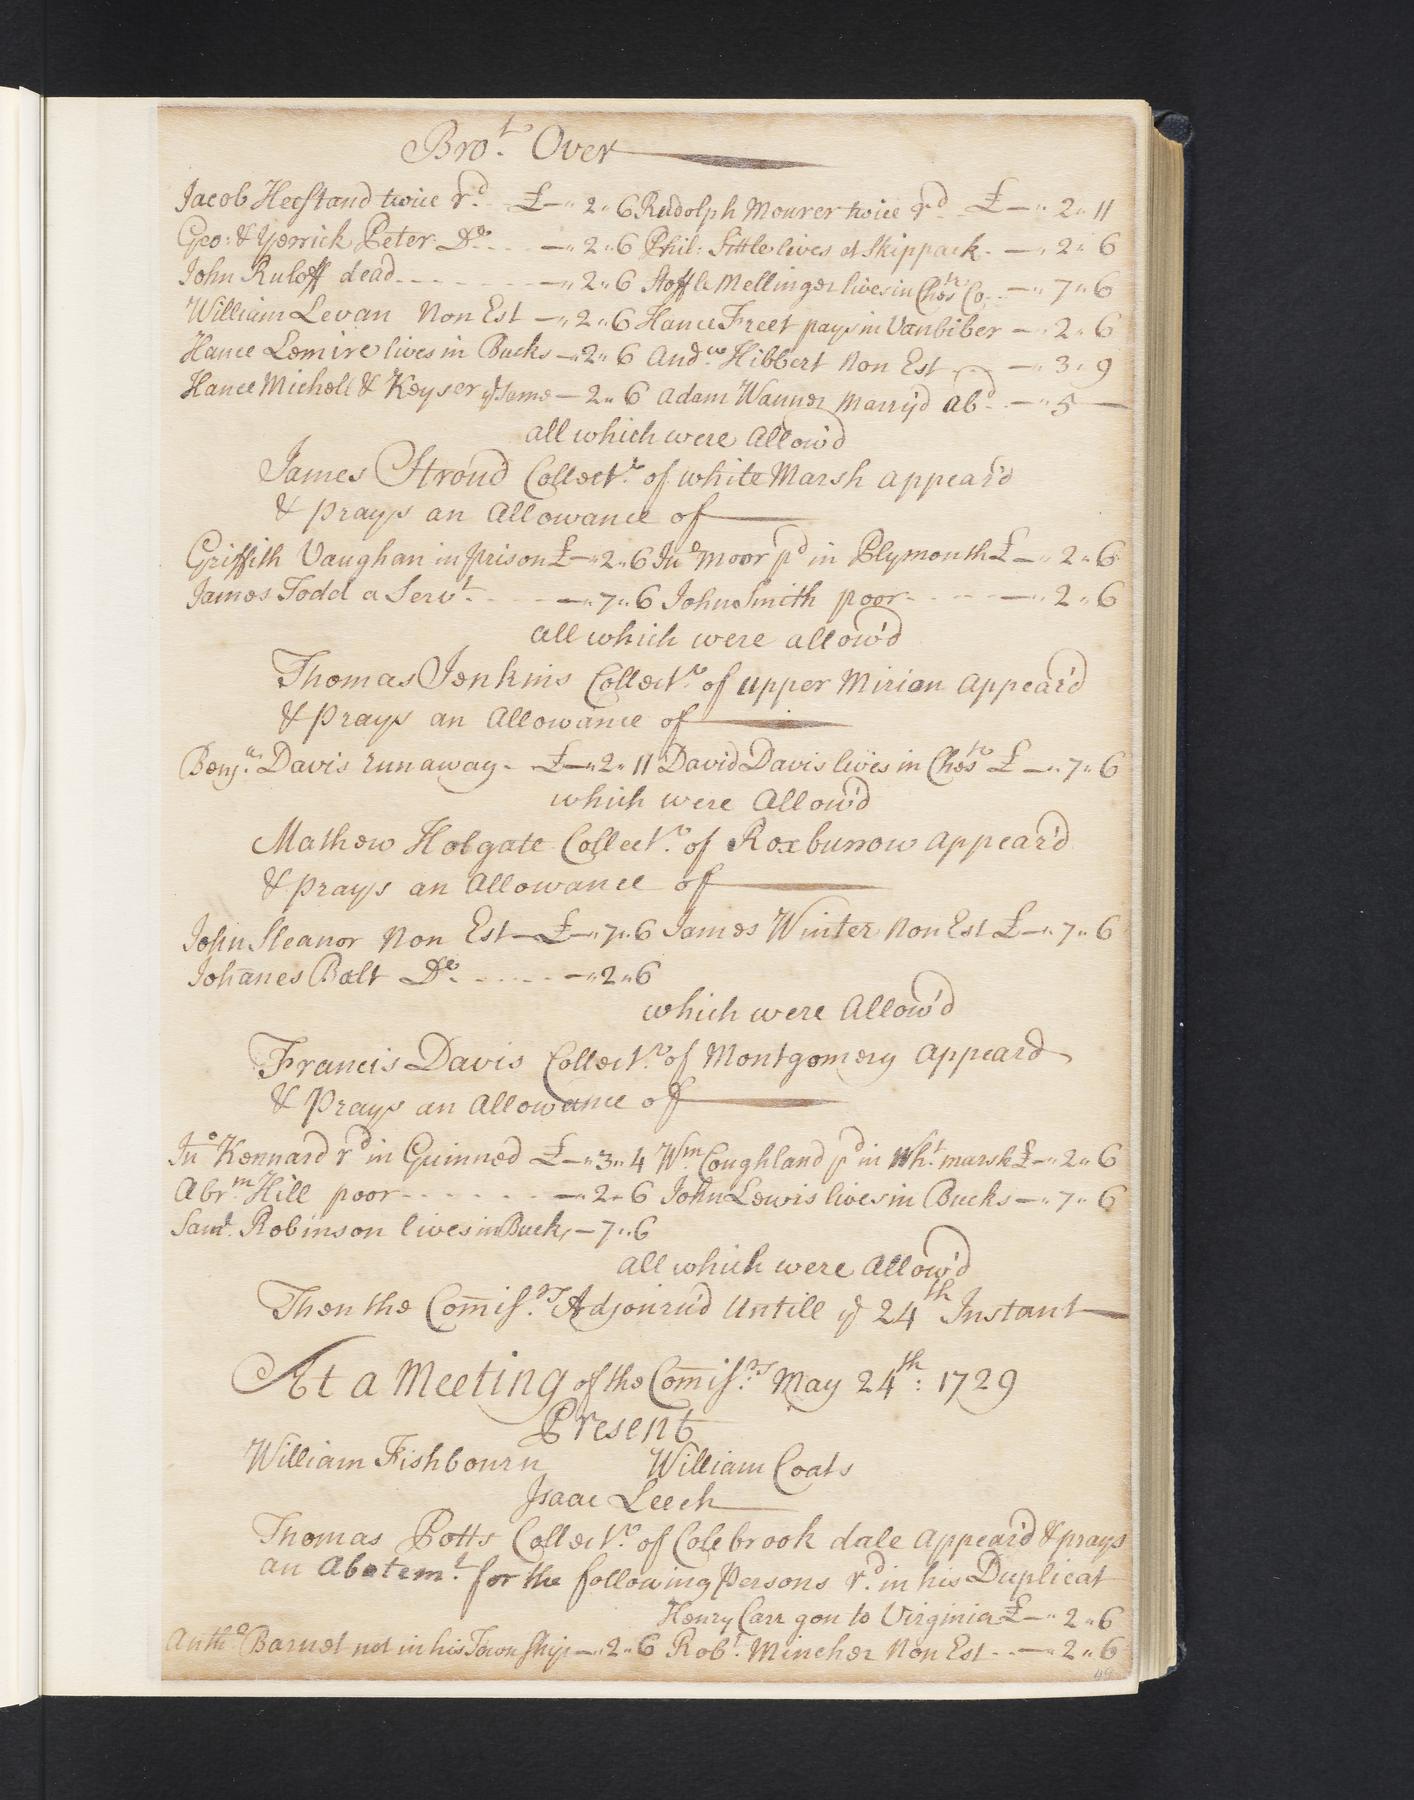 Bro.t Over
Jacob Hestand twice r.d £—„2„6 Rudolph Mourer twice r.d £—„2„11
Geo: & Yerrick Peter Do. —„2„6 Phil: Sittle lives at Skippack —„2„6
John Ruloff dead —„2„6 Stoffle Mellinger lives in Ches.r Co. —„7„6
William Levan Non Est —„2„6 Hance Freet pays in Vanbiber —„2„6
Hance Lemire lives in Bucks —„2„6 And.w Hibbert Non Est —„3„9
Hance Michell & Keyser ye Same —2„6 Adam Wanner Marry'd Ab.d —„5—
all which were Allow'd
James Stroud Collect.r of white Marsh appear'd
& prays an Allowance of
Griffith Vaughan in prison £—„2„6 Jno Moor p.d in Plymouth £—„2„6
James Todd a Serv.t —„7„6 John Smith poor —„2„6
all which were allow'd
Thomas Jenkins Collect.r of upper Mirion Appear'd
& prays an Allowance of
Benj.n Davis runaway £—„2„11 David Davis lives in Ches.r £—„7„6
which were Allow'd
Mathew Holgate Collect.r of Roxburrow appear'd
& prays an Allowance of
John Sleanor Non Est £—„7„6 James Winter Non Est £—„7„6
Johanes Balt Do. —„2„6
which were Allow'd
Francis Davis Collect.r of Montgomery Appeard
& prays an Allowance of
Jno Kennard r.d in Guinned £—„3„4 W.m Coughland p.d in Wh.t marsh £—„2„6
Abr.m Hill poor —„2„6 John Lewis lives in Bucks —„7„6
Sam.l Robinson lives in Bucks —7„6
all which were Allow'd
Then the Com̄is.rs Adjourn'd Untill ye 24th Instant
At a Meeting of the Com̄is.rs May 24th: 1729
Present
William Fishbourn William Coats
Isaac Leech
Thomas Potts Collect.r of Colebrook dale Appear'd & prays
an Abatem.t for the following Persons r.d in his Duplicat
Henry Carr gon to Virginia £—„2„6
Antho Barnet not in his Township —„2„6 Rob.t Mincher Non Est —„2„6